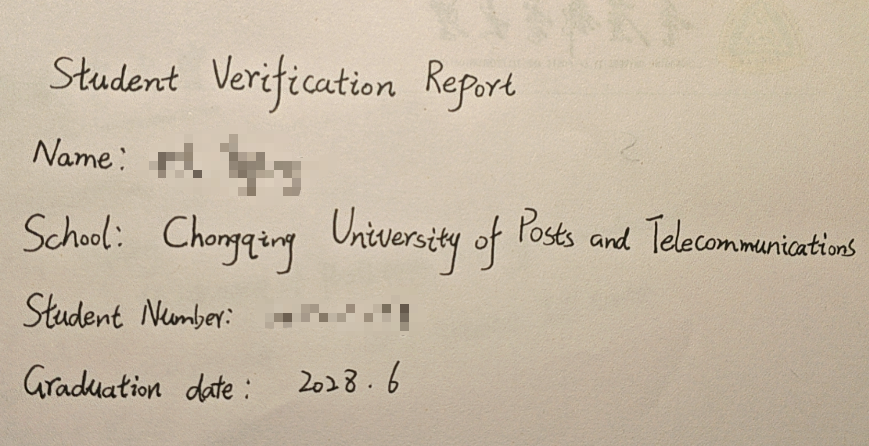 Student Verification Report
Name:
School: Chongqing University of Posts and Telecommunications
Student Number:
Graduation date: 2028.6